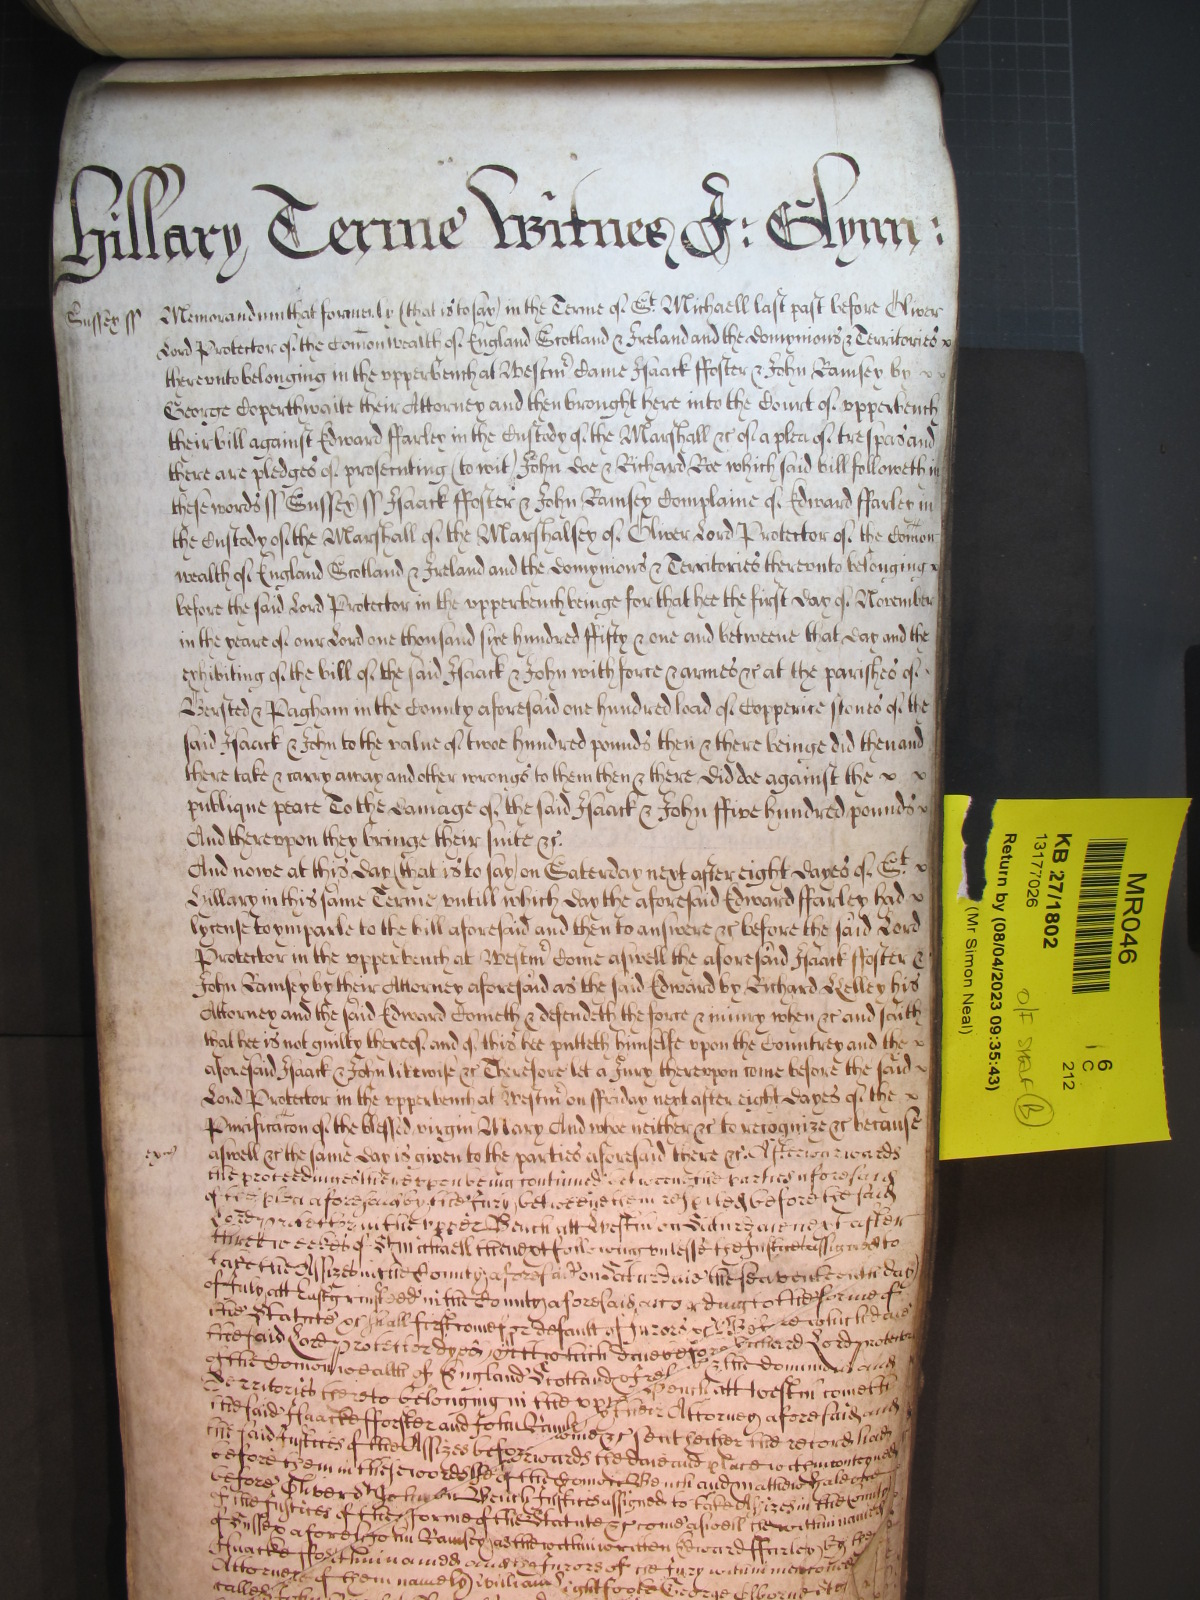 Hillary Terme Witnes J: Glynn:
Sussex ss Memorandum that formerly (that is to say) in the Terme of St. Michaell last past before Oliver
Lord Protector of the Comonwealth of England Scotland & Ireland and the domynions & Territories x
therevnto belonging in the vpperbench at Westmr Came Isaack ffoster & John Ramsey by x x
George Coperthwaite their Attorney and then brought here into the Court of vpperbench
their bill against Edward ffarley in the Custody of the Marshall &c of a plea of trespas and
there are pledges of prosecuting (to wit) John Doe & Richard Roe which said bill followeth in
these words ss Sussex ss Isaack ffoster & John Ramsey Complaine of Edward ffarley in
the Custody of the Marshall of the Marshalsey of Oliver Lord Protector of the Comon
wealth of England Scotland & Ireland and the domynions & Territories therevnto belonging x
before the said Lord Protector in the vpperbench beinge for that hee the first day of November
in the yeare of our Lord one thousand sixe hundred ffifty & one and betweene that day and the
exhibiting of the bill of the said Isaack & John with force & armes &c at the parishes of
Bersted & Pagham in the County aforesaid one hundred load of Copperice stones of the
said Isaack & John to the value of twoe hundred pounds then & there beinge did then and
there take & carry away and other wrongs to them then & there did doe against the x x
publique peace To the damage of the said Isaack & John ffive hundred pounds x
And therevpon they bringe their suite &c.
And nowe at this day (that is to say) on Saterday next after eight dayes of St. x
Hillary in this same Terme vntill which day the aforesaid Edward ffarley had x
lycense to ymparle to the bill aforesaid and then to answere &c before the said Lord
Protector in the vpperbench at Westmr Come aswell the aforesaid Isaack ffoster &
John Ramsey by their Attorney aforesaid as the said Edward by Richard Kelley his
Attorney and the said Edward Cometh & defendeth the force & iniury when &c and saith
that hee is not guilty thereof. and of this hee putteth himselfe vpon the Countrey and the x
aforesaid Isaack & John likewise &c Therefore let a Jury therevpon come before the said x
Lord Protector in the vpperbench at Westmr on ffriday next after eight dayes of the x
Purificacon of the blessed virgin Mary And whoe neither &c to recognize &c because
aswell &c the same day is given to the parties aforesaid there &c. Afterwards
the proceedings therevpon being continued betweene the parties aforesaid
of the plea aforesaid by the Jury betweene them respited before the said
Lord Protector in the vpper Bench att Westm on Saturdaie next after
three weekes of St Michaell then next following vnlesse the Justices assigned to
take the Assizes in the County aforesaid on Saturdaie the seaventeenth day
of July att Eastgrinsteed in the County aforesaid according to the forme of
the Statute &c shall first come for default of Jurors &c Before which daie
the said Lord Protector dyed Att which daie before Richard Lord protector
of the Comonwealth of England Scotland & the dominions and
Territories thereto belonging in the Bench att westm cometh
the said Isaacke fforster and John Attorney aforesaid and
the said Justices of the Assizes before &c sent hether the record had
before them in these words the daie and place within conteyned
before Oliver of the Comon Bench and Mathew Hale one
of the Justices of Bench Justices assigned to take Assizes in the County
of Sussex forme of the Statute &c come aswell the within named
Isaacke John Ramsey as the within written Edward ffarley by the
Attorneys within named and the Jurors of the Jury within mentioned
called of them namely William Lightfoote George
MR046
KB 27/1802
13177026
Return by (08/04/2023 09:35:43)
(Mr Simon Neal)
6
C
212
O/F
B